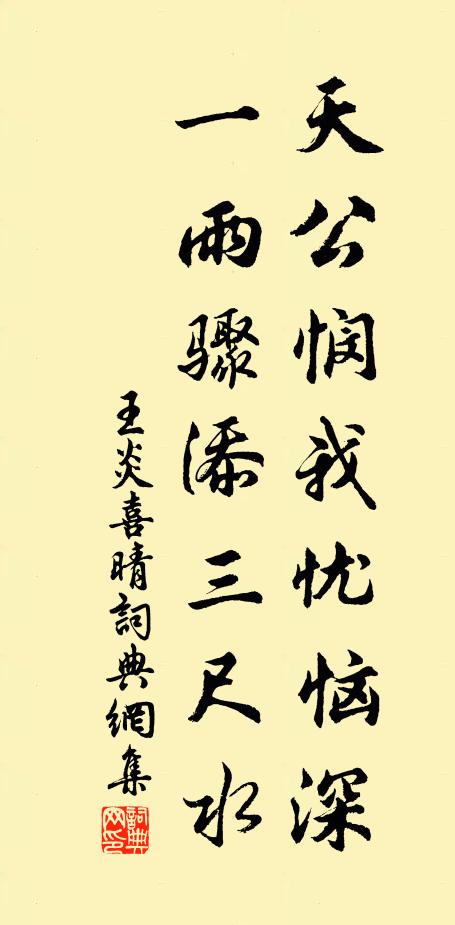 天公悯我忧恼深
一雨骤添三尺水
王炎喜晴詞典網集
詞典网印